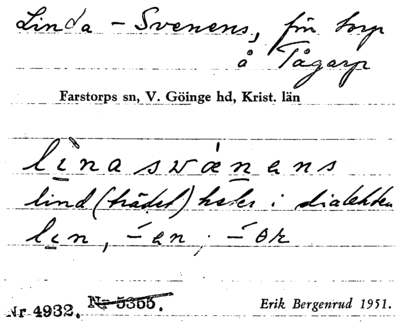 Linda-Svenens, förr torp
å Tågarp
Farstorps sn, V. Göinge hd, Krist. län
lìnaswǽnens
lind (trädet) heter i dialekten
lin, -́en, -́er
Nr 4932. Nr 5355.
Erik Bergenrud 1951.